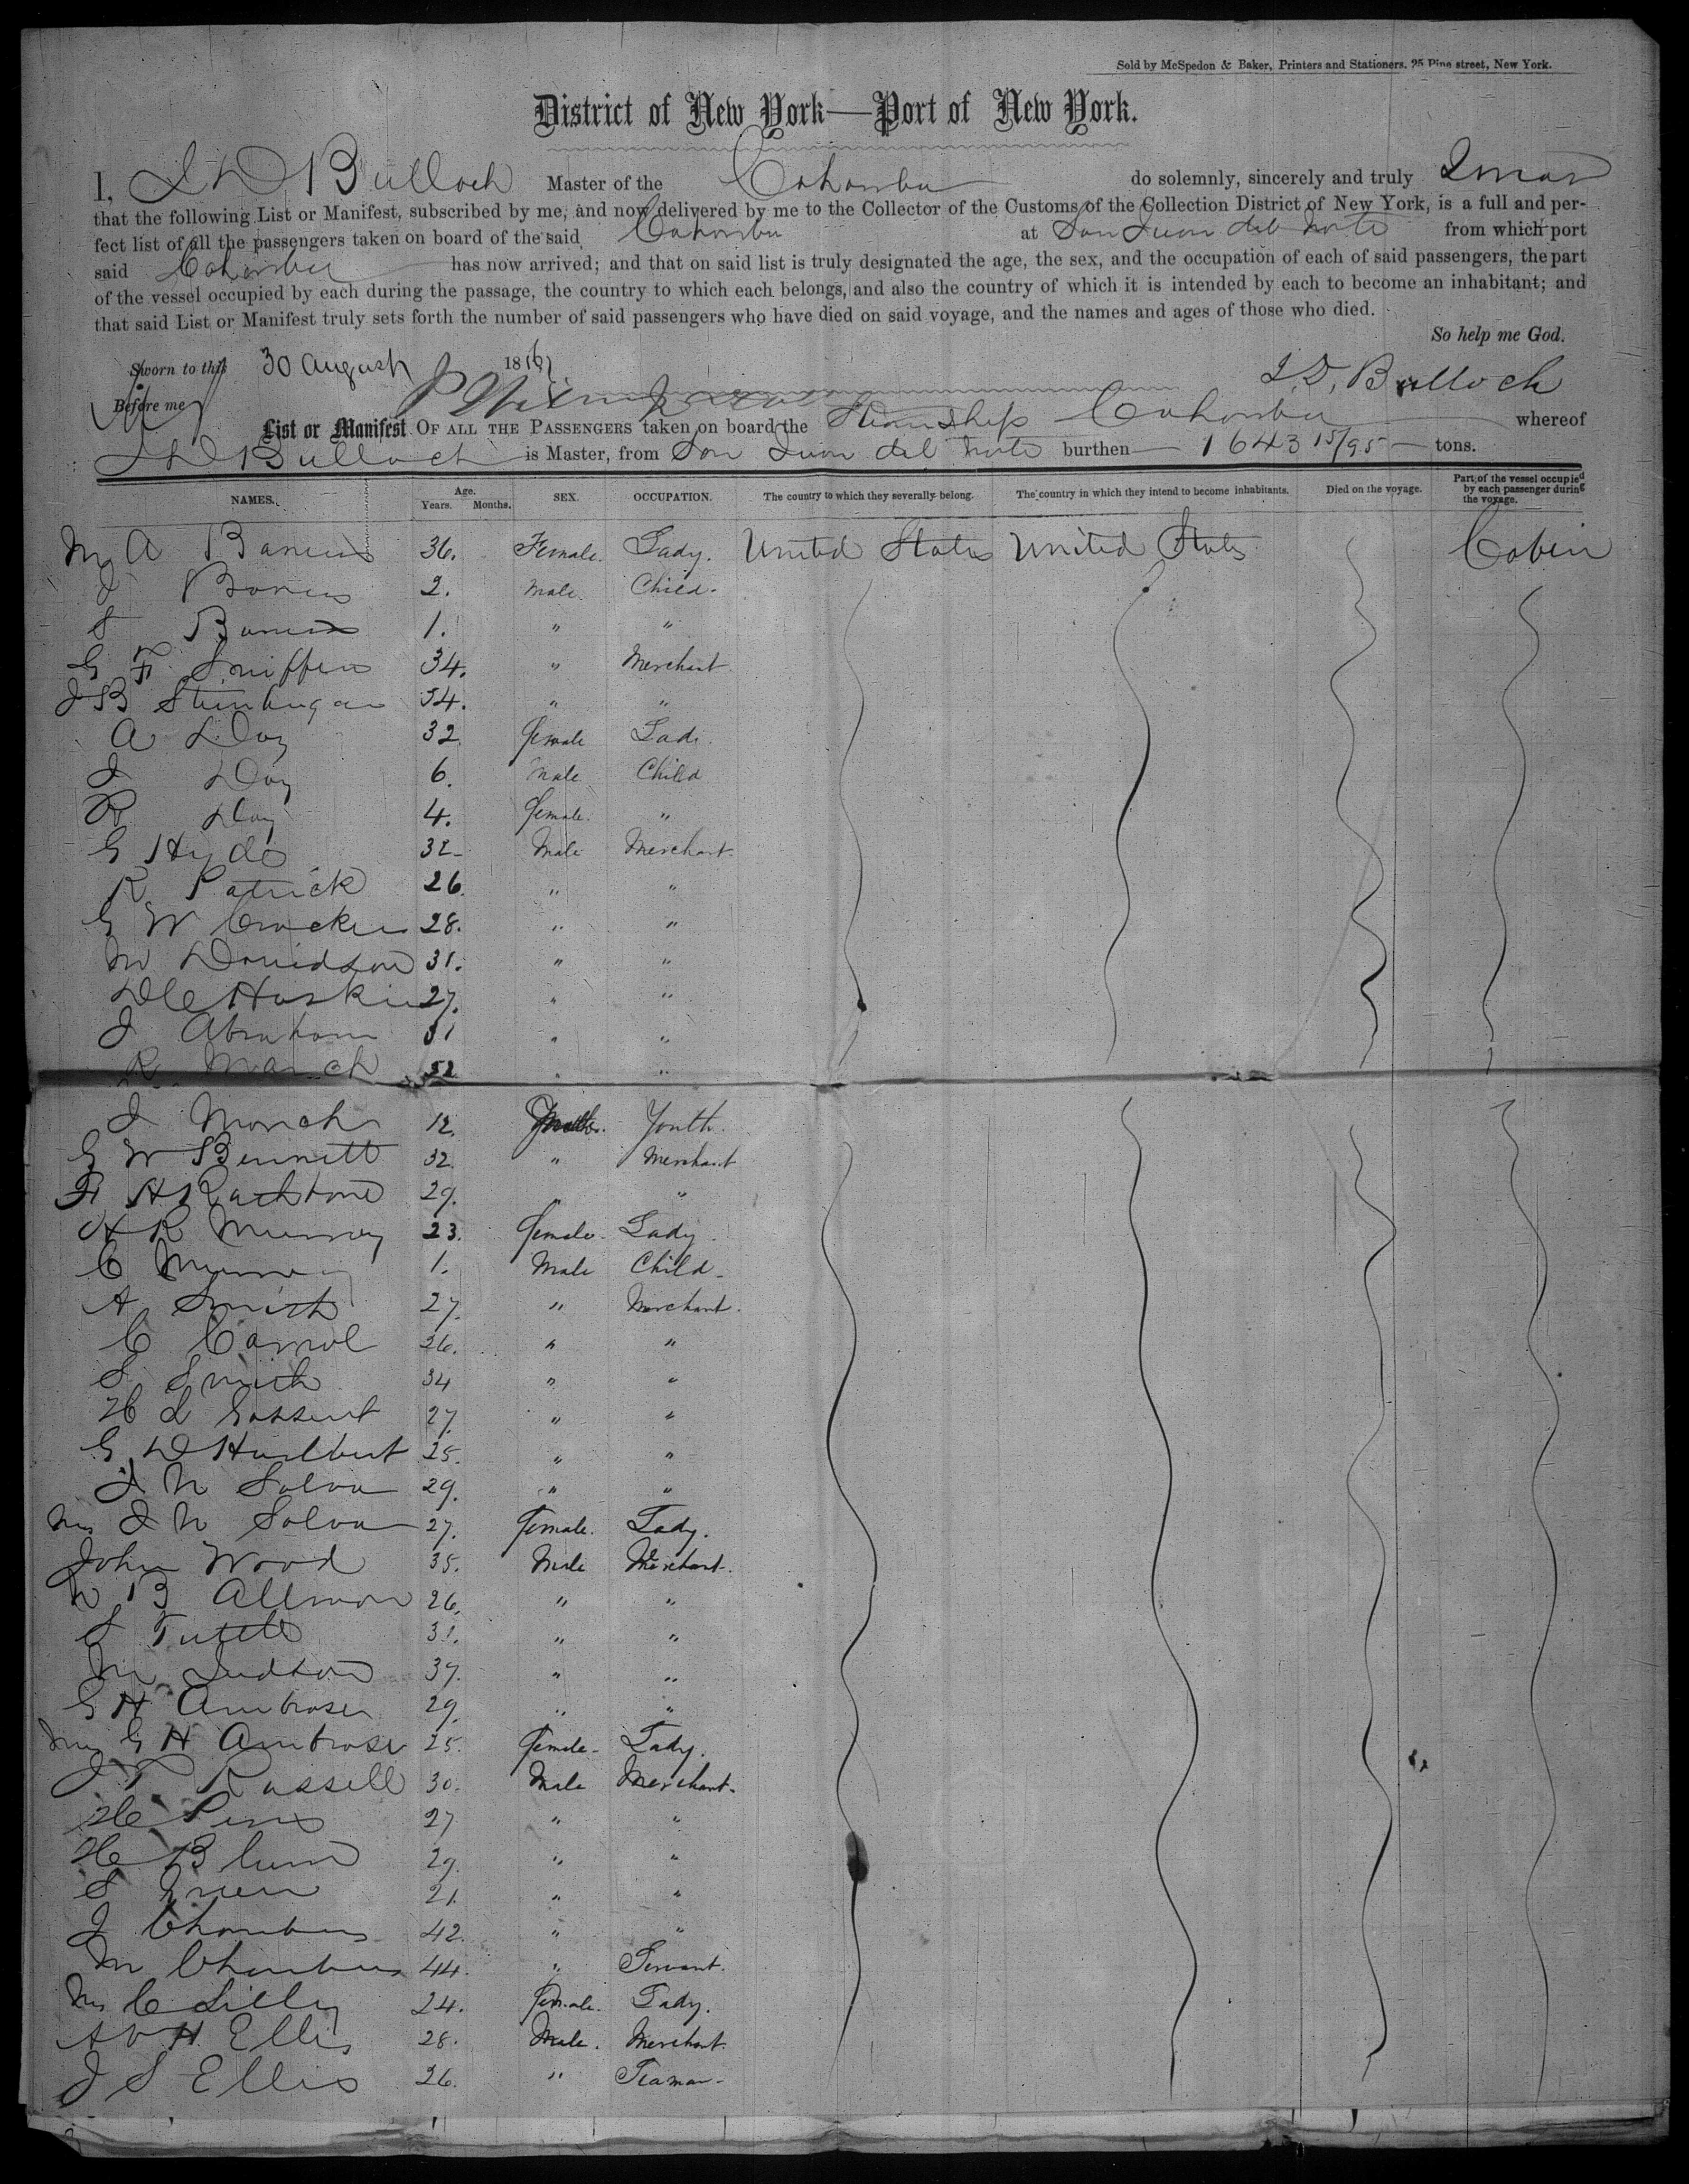 Sold by McSpedon & Baker, Printers and Stationers, 25 Pine street, New York.
District of New York—Port of New York.
I, J D Bulloch Master of the Cahawba do solemnly, sincerely and truly Swear
that the following List or Manifest, subscribed by me, and now delivered by me to the Collector of the Customs of the Collection District of New York, is a full and per-
fect list of all the passengers taken on board of the said Cahawba at San Juan del Norte from which port
said Cahawba has now arrived; and that on said list is truly designated the age, the sex, and the occupation of each of said passengers, the part
of the vessel occupied by each during the passage, the country to which each belongs, and also the country of which it is intended by each to become an inhabitant; and
that said List or Manifest truly sets forth the number of said passengers who have died on said voyage, and the names and ages of those who died.
So help me God.
Sworn to this 30 August 1856
J. D. Bulloch
Before me
List or Manifest OF ALL THE PASSENGERS taken on board the Steamship Cahawba whereof
J D Bulloch is Master, from San Juan del Norte burthen 1643 15/95 tons.
NAMES. Age. Years. Months. SEX. OCCUPATION. The country to which they severally belong. The country in which they intend to become inhabitants. Died on the voyage. Part of the vessel occupied by each passenger during the voyage.
Mrs A 36. Female. Lady. United States United States Cabin
J 2. Male. Child.
S 1. " "
G F Sniffen 34. " Merchant.
J B 34. " "
A Day 32 female Lady
J Day 6. Male Child
R Day 4. female. "
G Hyde 32 Male Merchant.
R Patrick 26. " "
G W Crocker 28. " "
M Davidson 31. " "
D C Haskin 27. " "
J Abraham 31 " "
R March 52 " "
J March 12. Youth.
G W Bennett 32. " Merchant
F H Rathbone 29. " "
H R Murray 23. female. Lady.
C Murray 1. Male Child.
A Smith 27. " Merchant.
C Carrol 26. " "
S Smith 34 " "
H L 27. " "
G D Hurlbut 25. " "
J N Salva 29. " "
Mrs J N Salva 27. Female. Lady.
John Wood 35. Male Merchant.
B Allmon 26. " "
S Tuttle 31. " "
M Judson 37. " "
G H Ambrose 29. " "
Mrs G H Ambrose 25. female. Lady.
J T Russell 30. Male Merchant.
H 27 " "
H Blum 29. " "
S Green 21. " "
J Chambers 42. " "
M Chambers 44. " Servant.
Mrs C Lilly 24. female. Lady.
A V H. Ellis 28. Male. Merchant.
J S Ellis 26. " Seaman.